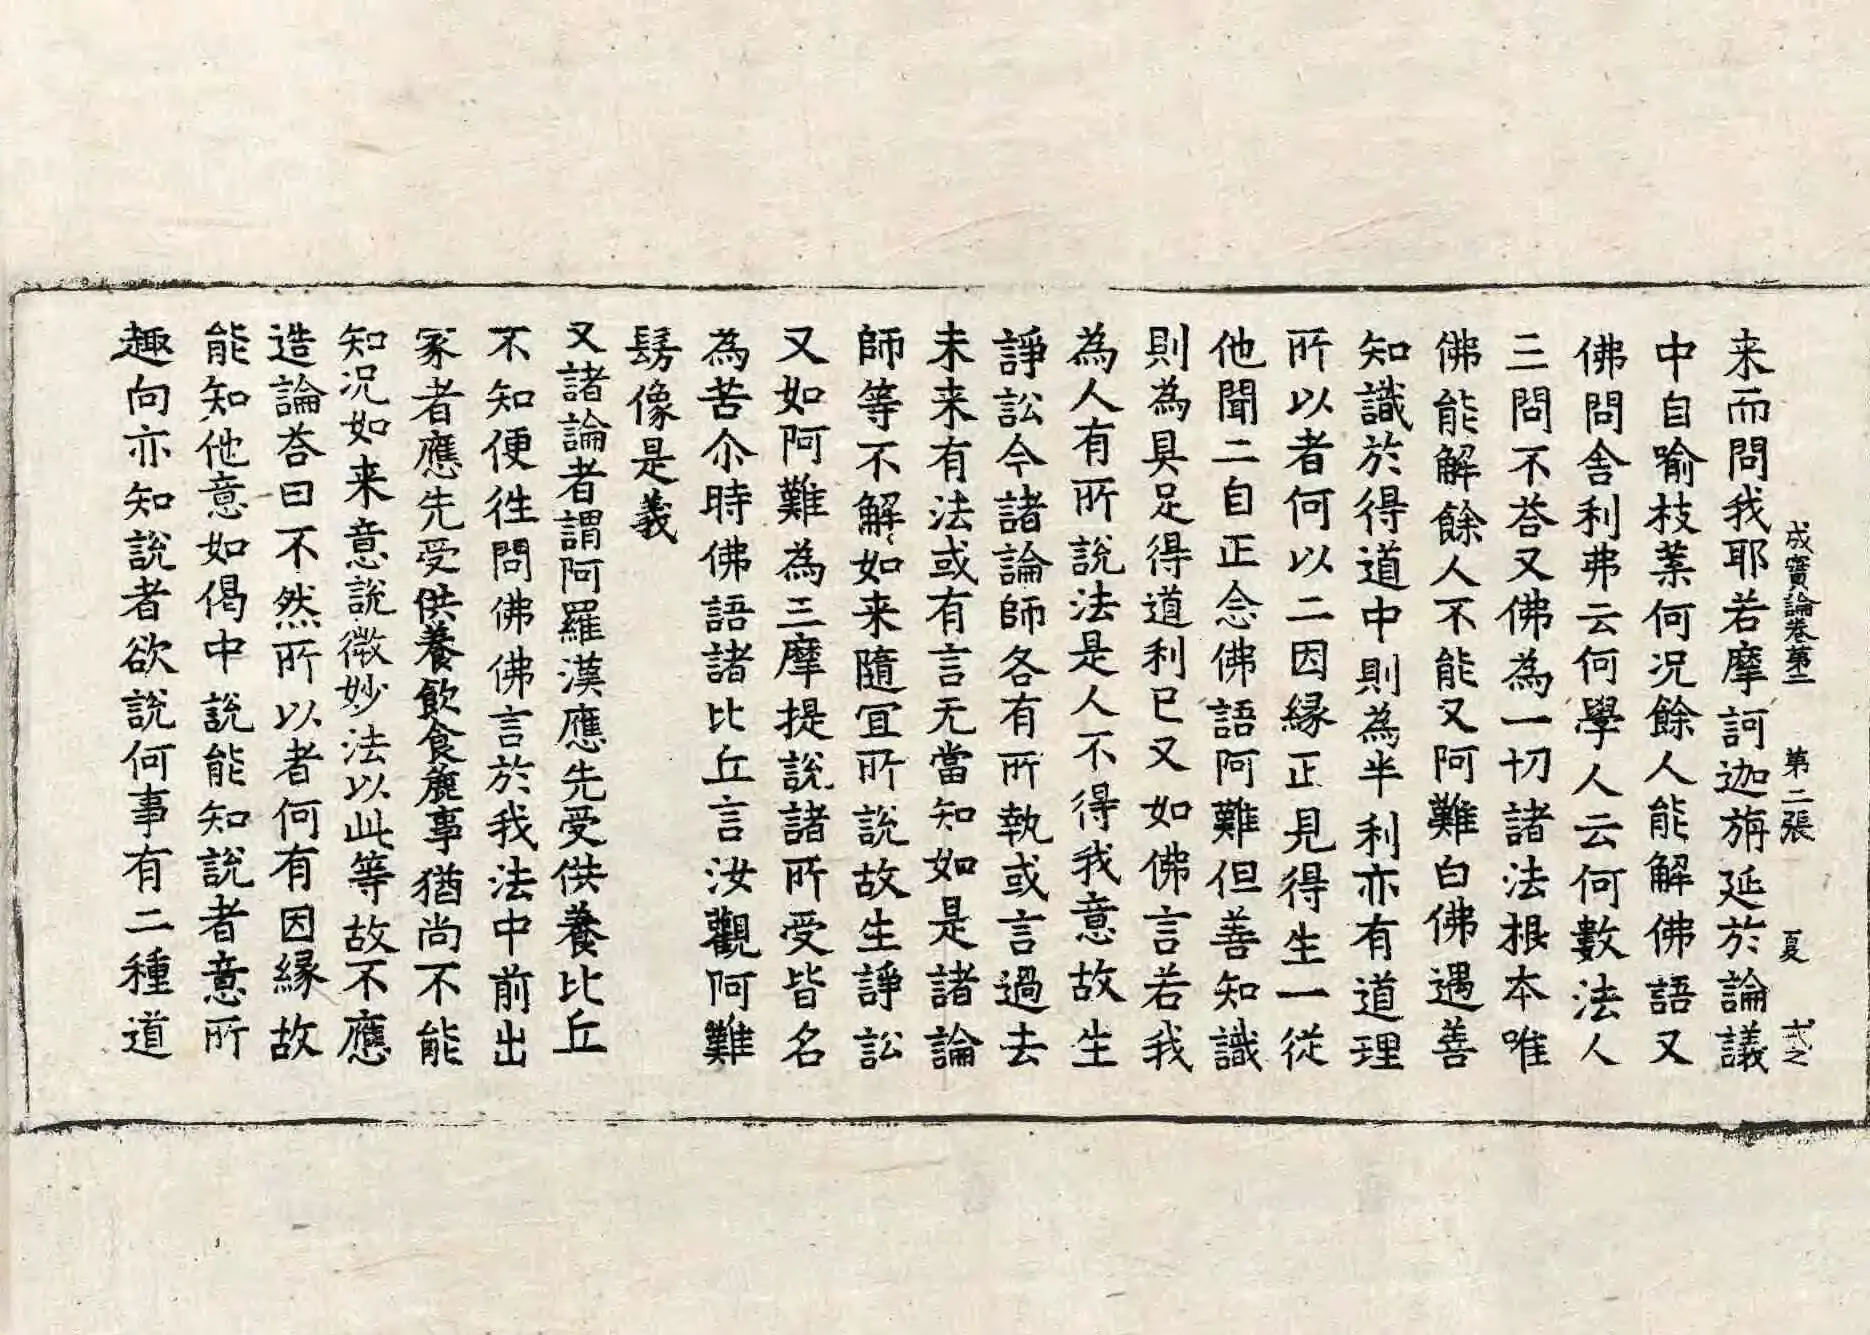 成實論卷第二 第二張 夏 弍之
来而問我耶若摩訶迦旃延於論議
中自喻枝葉何况餘人能解佛語又
佛問舍利弗云何學人云何數法人
三問不荅又佛為一切諸法根本唯
佛能解餘人不能又阿難白佛遇善
知識於得道中則為半利亦有道理
所以者何以二因緣正見得生一從
他聞二自正念佛語阿難但善知識
則為具足得道利已又如佛言若我
為人有所說法是人不得我意故生
諍訟今諸論師各有所執或言過去
未来有法或有言无當知如是諸論
師等不解如来隨冝所說故生諍訟
又如阿難為三摩提說諸所受皆名
為苦尒時佛語諸比丘言汝觀阿難
髣像是義
又諸論者謂阿羅漢應先受供養比丘
不知便徃問佛佛言於我法中前出
家者應先受供養飲食麁事猶尚不能
知况如来意說微妙法以此等故不應
造論荅曰不然所以者何有因緣故
能知他意如偈中說能知說者意所
趣向亦知說者欲說何事有二種道